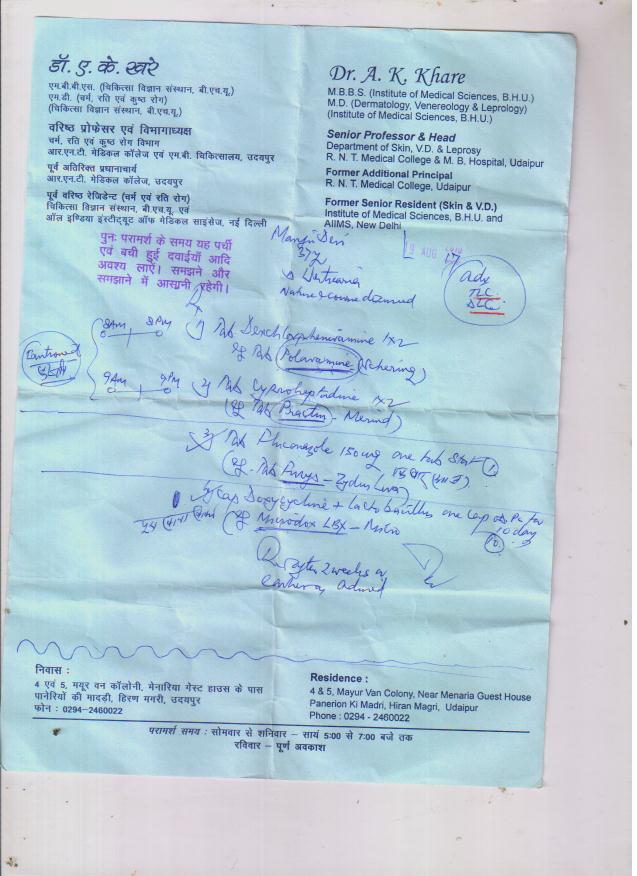 डॉ. ए. के. खरे
एम.बी.बी.एस. (चिकित्सा विज्ञान संस्थान, बी.एच.यू.)
एम.डी. (चर्म, रति एवं कुष्ठ रोग)
(चिकित्सा विज्ञान संस्थान, बी.एच.यू.)
वरिष्ठ प्रोफेसर एवं विभागाध्यक्ष
चर्म, रति एवं कुष्ठ रोग विभाग
आर.एन.टी. मेडिकल कॉलेज एवं एम.बी. चिकित्सालय, उदयपुर
पूर्व अतिरिक्त प्रधानाचार्य
आर.एन.टी. मेडिकल कॉलेज, उदयपुर
पूर्व वरिष्ठ रेजिडेन्ट (चर्म एवं रति रोग)
चिकित्सा विज्ञान संस्थान, बी.एच.यू. एवं
ऑल इण्डिया इंस्टीट्यूट ऑफ मेडिकल साइंसेज, नई दिल्ली
Dr. A. K. Khare
M.B.B.S. (Institute of Medical Sciences, B.H.U.)
M.D. (Dermatology, Venereology & Leprology)
(Institute of Medical Sciences, B.H.U.)
Senior Professor & Head
Department of Skin, V.D. & Leprosy
R. N. T. Medical College & M. B. Hospital, Udaipur
Former Additional Principal
R. N. T. Medical College, Udaipur
Former Senior Resident (Skin & V.D.)
Institute of Medical Sciences, B.H.U. and
AIIMS, New Delhi
पुनः परामर्श के समय यह पर्ची
एवं बची हुई दवाईयाँ आदि
अवश्य लाएँ। समझने और
समझाने में आसानी रहेगी।
19 AUG
Adv
TLC
DLC
Urticaria
Nature & course discussed
8AM 8PM
1) Tab Dexchlorpheniramine 1x2
eg Tab Polaramine (Schering)
9AM 9PM
2) Tab Cyproheptadine 1x2
(eg Tab Practin - Merind)
3) Tab Fluconazole 150mg one tab Stat 1
4) Cap Doxycycline + Lactobacillus one cap
10 days
10
(eg Microdox LBX - Micro
after 2 weeks or
earlier as advised
निवास :
4 एवं 5, मयूर वन कॉलोनी, मेनारिया गेस्ट हाउस के पास
पानेरियों की मादड़ी, हिरण मगरी, उदयपुर
फोन : 0294-2460022
Residence :
4 & 5, Mayur Van Colony, Near Menaria Guest House
Panerion Ki Madri, Hiran Magri, Udaipur
Phone : 0294 - 2460022
परामर्श समय : सोमवार से शनिवार – सायं 5:00 से 7:00 बजे तक
रविवार – पूर्ण अवकाश